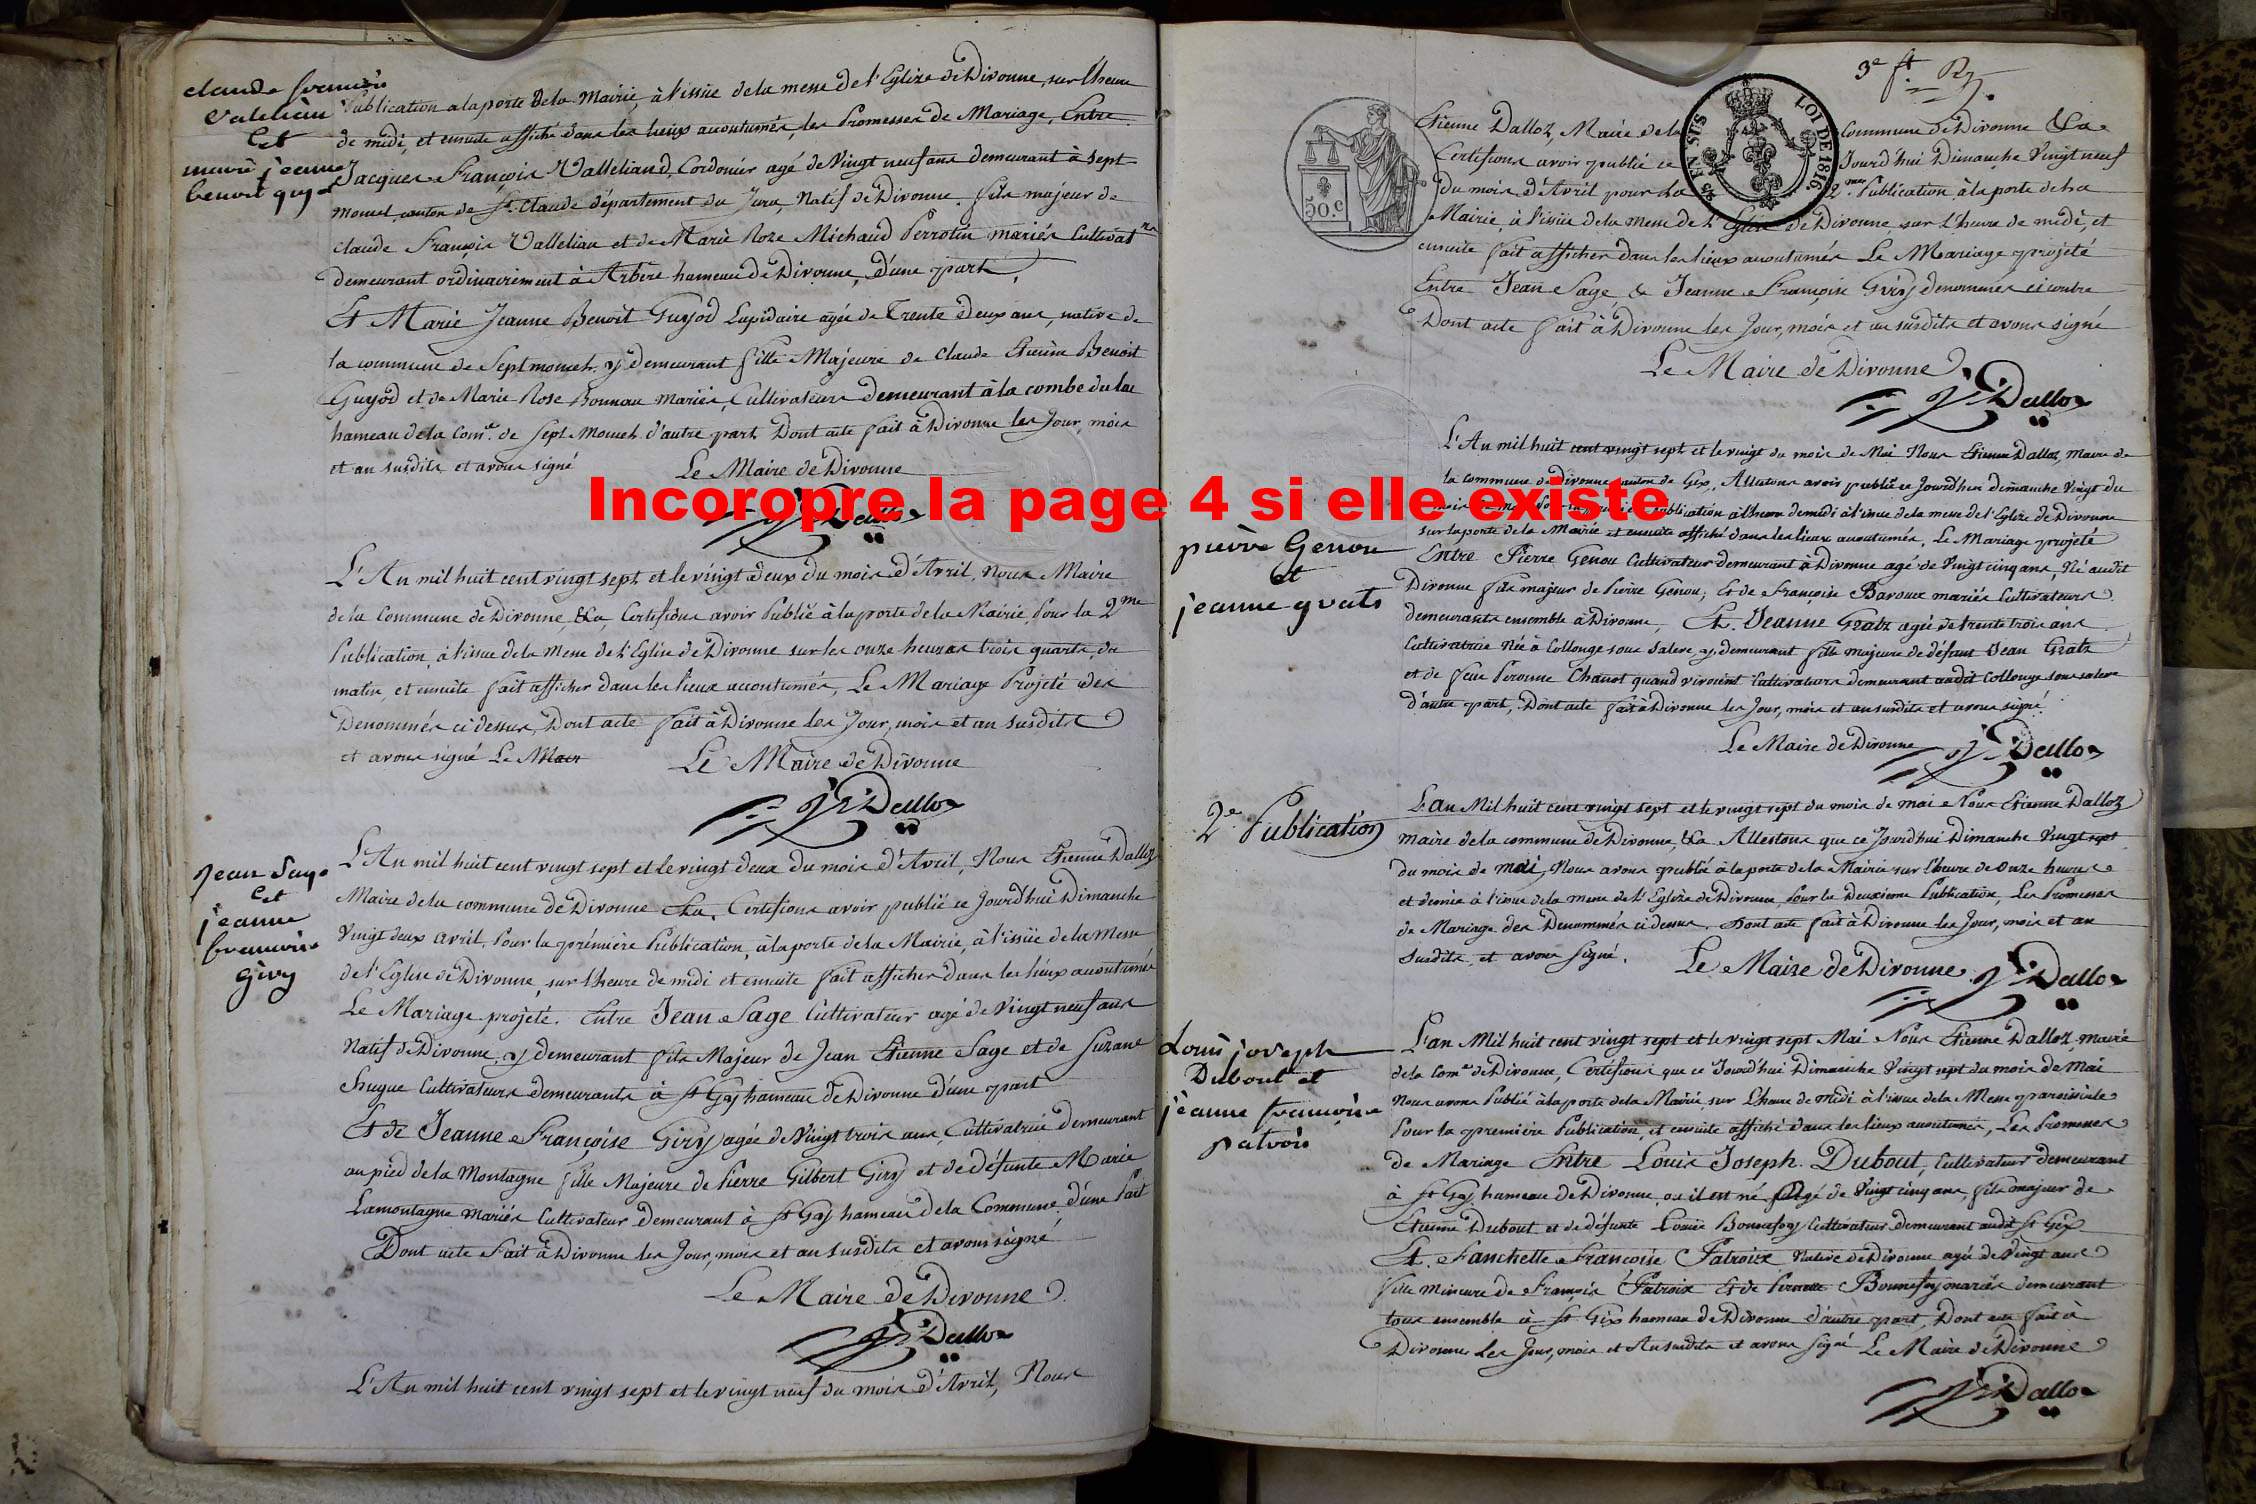 claude francois
valeliau
Et
marie jeanne
benoit guyod
Publication a la porte de la Mairie, à l'issüe de la messe de l'Eglize de Divonne, sur l'heure
de midi, et ensuite affiché dans les lieux accoutumés, les Promesses de Mariage, Entre
Jacques François Valleliaud, Cordonier agé de Vingt neuf ans demeurant à Sept
moncel canton de St. Claude département du Jura, Natif de Divonne, fils majeur de
Claude François Valleliau et de Marie Roze Michaud Perrotin mariés Cultivatrs
demeurant ordinairement à Arbère hameau de Divonne, d'une part,
Et Marie Jeanne Benoit Guyod Lapidaire agée de Trente deux ans, native de
la commune de Septmoncel y demeurant fille Majeure de Claude Etienne Benoit
Guyod et de Marie Rose Bonnau mariés, Cultivateurs demeurant à la combe du lac
hameau de la Come. de Sept Moncel d'autre part Dont acte fait à Divonne les Jour, mois
et an susdits et avons signé
Le Maire de Divonne
Dalloz
L'An mil huit cent vingt sept et le vingt deux du mois d'Avril, Nous Maire
de la Commune de Divonne, &a, Certifions avoir Publié à la porte de la Mairie Pour la 2me
Publication, à l'issue de la Messe de l'Eglise de Divonne sur les onze heures trois quarts du
matin, et ensuite fait afficher dans les lieux accoutumés, Le Mariage Projeté des
Denommés ci dessus, Dont acte fait à Divonne les Jour, mois et an susdits
et avons signé Le Mair
Le Maire de Divonne
Dalloz
Jean Sage
Et
jeanne
francoise
Giry
L'An mil huit cent vingt sept et le vingt deux du mois d'Avril, Nous Etienne Dalloz
Maire de la commune de Divonne &a, Certifions avoir publié ce Jourd'hui Dimanche
Vingt deux avril, Pour la première Publication, à la porte de la Mairie, à l'issüe de la Messe
de l'Eglise de Divonne, sur l'heure de midi et ensuite fait afficher dans les lieux accoutumés
Le Mariage projeté. Entre Jean Sage Cultivateur agé de Vingt neuf ans
Natif de Divonne y demeurant fils Majeur de Jean Etienne Sage et de Suzane
hugue Cultivateurs demeurants à St Gix hameau de Divonne d'une part
Et de Jeanne Françoise Giry agée de Vingt trois ans, Cultivatrice demeurant
au pied de la Montagne fille Majeure de Pierre Gilbert Giry et de défunte Marie
Lamontagne mariés Cultivateur demeurant à St Gix hameau de la Commune, d'une Part
Dont acte Fait à Divonne les Jour, mois et an susdits et avons signé
Le Maire de Divonne
Dalloz
L'An mil huit cent vingt sept et le vingt neuf du mois d'Avril, Nous
3e ft.
50.c
25 EN SUS
LOI DE 1816
Etienne Dalloz, Maire de la Commune de Divonne &a
Certifions avoir publié ce Jourd'hui Dimanche Vingt neuf
du mois d'Avril pour La 2me Publication à la porte de la
Mairie, à l'issüe de la Messe de l'Eglise de Divonne sur l'heure de midi, et
ensuite fait afficher dans les lieux accoutumés Le Mariage projeté
Entre Jean Sage, & Jeanne Françoise Giry denommés ci contre
Dont acte fait à Divonne les Jour, mois et an susdits et avons signé
Le Maire de Divonne
Dalloz
Incoropre la page 4 si elle existe
pierre Genou
et
jeanne grats
L'An mil huit cent vingt sept et le vingt du mois de Mai Nous Etienne Dalloz, Maire de
la commune de Divonne canton de Gex, Attestons avoir publié ce Jourd'hui dimanche Vingt du
publication à l'heure de midi à l'issue de la messe de l'Eglize de Divonne
sur la porte de la Mairie et ensuite affiché dans les lieux accoutumés, Le Mariage projeté
Entre Pierre Genou Cultivateur demeurant à Divonne agé de Vingt cinq ans, Né audit
Divonne fils majeur de Pierre Genou, Et de Françoise Baroux mariés Cultivateurs
demeurants ensemble à Divonne, Et. Jeanne Gratz agée de trente trois ans
Cultivatrice Née à Collonge sous Saleve y demeurant fille majeure de défunt Jean Gratz
et de feue Peronne Chanot quand vivoient Cultivateurs demeurant audit Collonge sous saleve
d'autre part, Dont acte fait à Divonne les Jour, mois et an susdits et avons signé
Le Maire de Divonne
Dalloz
2e Publication
L'an Mil huit cent vingt sept et le vingt sept du mois de mai Nous Etienne Dalloz
maire de la commune de Divonne, &a Attestons que ce Jourd'hui Dimanche Vingt sept
du mois de Mai, Nous avons publié à la porte de la Mairie sur l'heure de Onze heures
et demie à l'issue de la messe de l'Eglise de Divonne, Pour la Deuxieme Publication, Les Promesses
de Mariage des Denommés ci dessus. Dont acte fait à Divonne les Jour, mois et an
susdits, et avons signé.
Le Maire de Divonne
Dalloz
Louis joseph
Dubout et
jeanne francoise
patroix
L'an Mil huit cent vingt sept et le vingt sept Mai Nous Etienne Dalloz, maire
de la Come. de Divonne, Certifions que ce Jourd'hui Dimanche Vingt sept du mois de Mai
Nous avons Publié à la porte de la Mairie, sur l'heure de midi à l'issue de la Messe paroissiale
Pour la premiere Publication, et ensuite affiché dans les lieux accoutumés, Les Promesses
de Mariage Entre Louis Joseph Dubout, Cultivateur demeurant
à St Gix hameau de Divonne, où il est né, Agé de Vingt cinq ans, fils majeur de
Etienne Dubout et de défunte Louise Bonnefoy Cultivateur demeurant audit St Gix
Et. Fanchette Françoise Patroix Native de Divonne agée de Vingt ans
fille mineure de François Patroix Et de Pernette Bonnefoy mariés demeurant
tous ensemble à St Gix hameau de Divonne d'autre part, Dont acte fait à
Divonne les Jour, mois et An susdits et avons signé Le Maire de Divonne
Dalloz